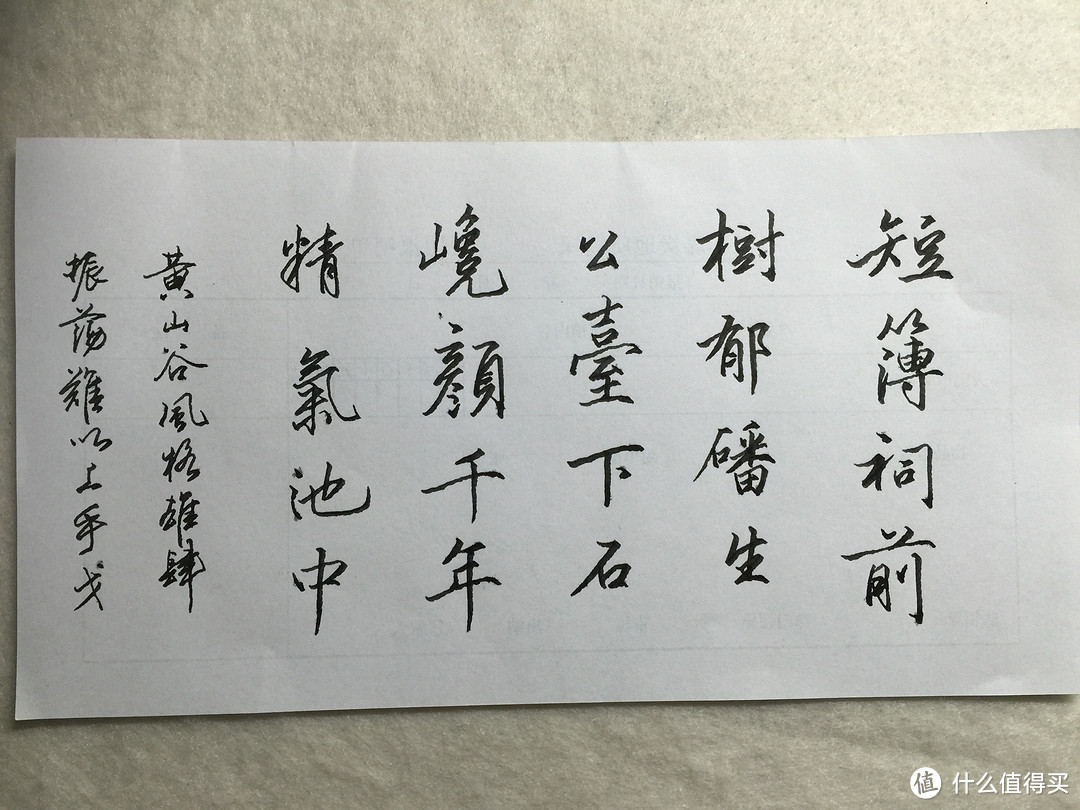 短簿祠前
樹郁磻生
公臺下石
巉顏千年
精氣池中
黄山谷風格雄肆
振蕩難以上手戈
值 什么值得买